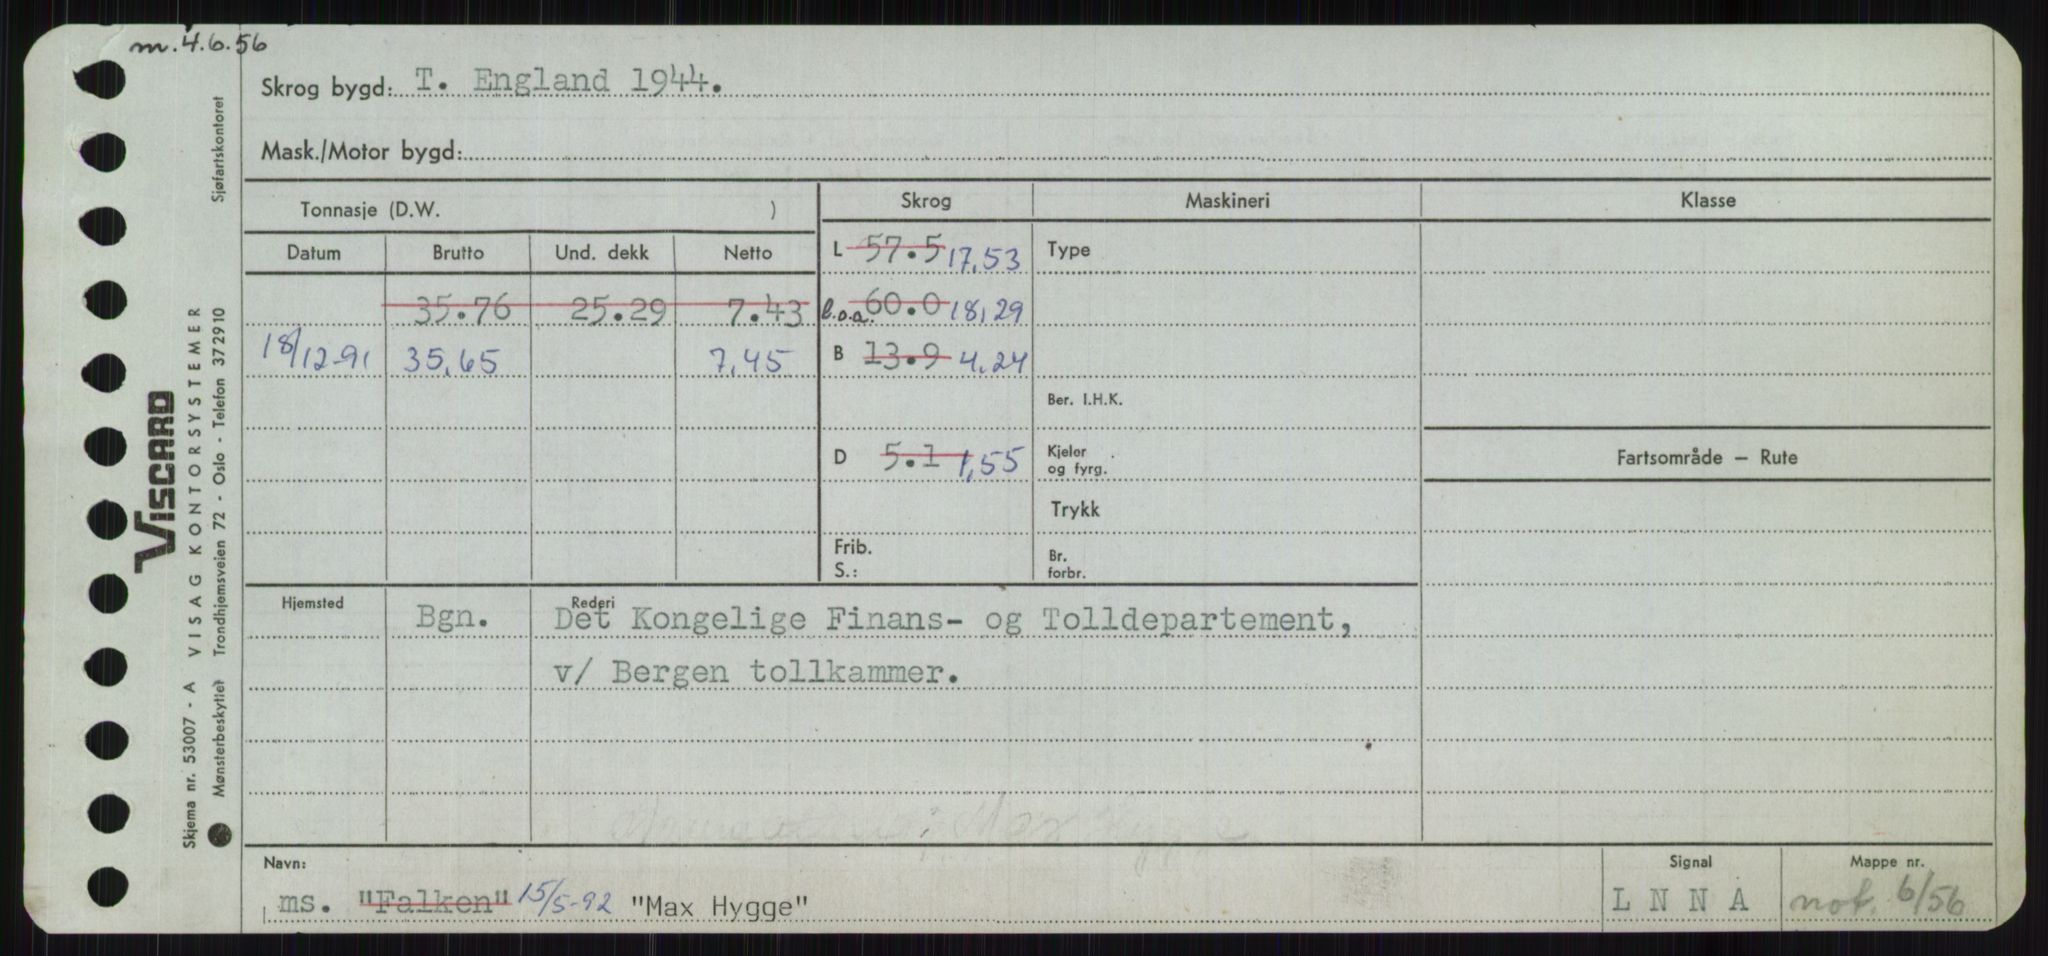 m. 4.6.56
Skrog bygd: T. England 1944.
Mask./Motor bygd:
Tonnasje (D.W. )
Skrog Maskineri Klasse
Datum Brutto Und. dekk Netto
L 57.5 17,53 Type
35.76 25.29 7.43
l.o.a. 60.0 18,29
18/12-91 35,65 7,45
B 13.9 4,24
Ber. I.H.K.
D 5.1 1,55
Kjeler
og fyrg.
Fartsområde – Rute
Trykk
Frib.
S.:
Br.
forbr.
Hjemsted Bgn. Rederi Det Kongelige Finans- og Tolldepartement,
v/ Bergen tollkammer.
: Max Hygge
Navn:
ms. "Falken" 15/5-92 "Max Hygge"
Signal
L N N A
Mappe nr.
not. 6/56
Viscard
VISAG KONTORSYSTEMER
Sjøfartskontoret
Trondhjemsveien 72 - Oslo - Telefon 372910
Skjema nr. 53007 - A
Mønsterbeskyttet